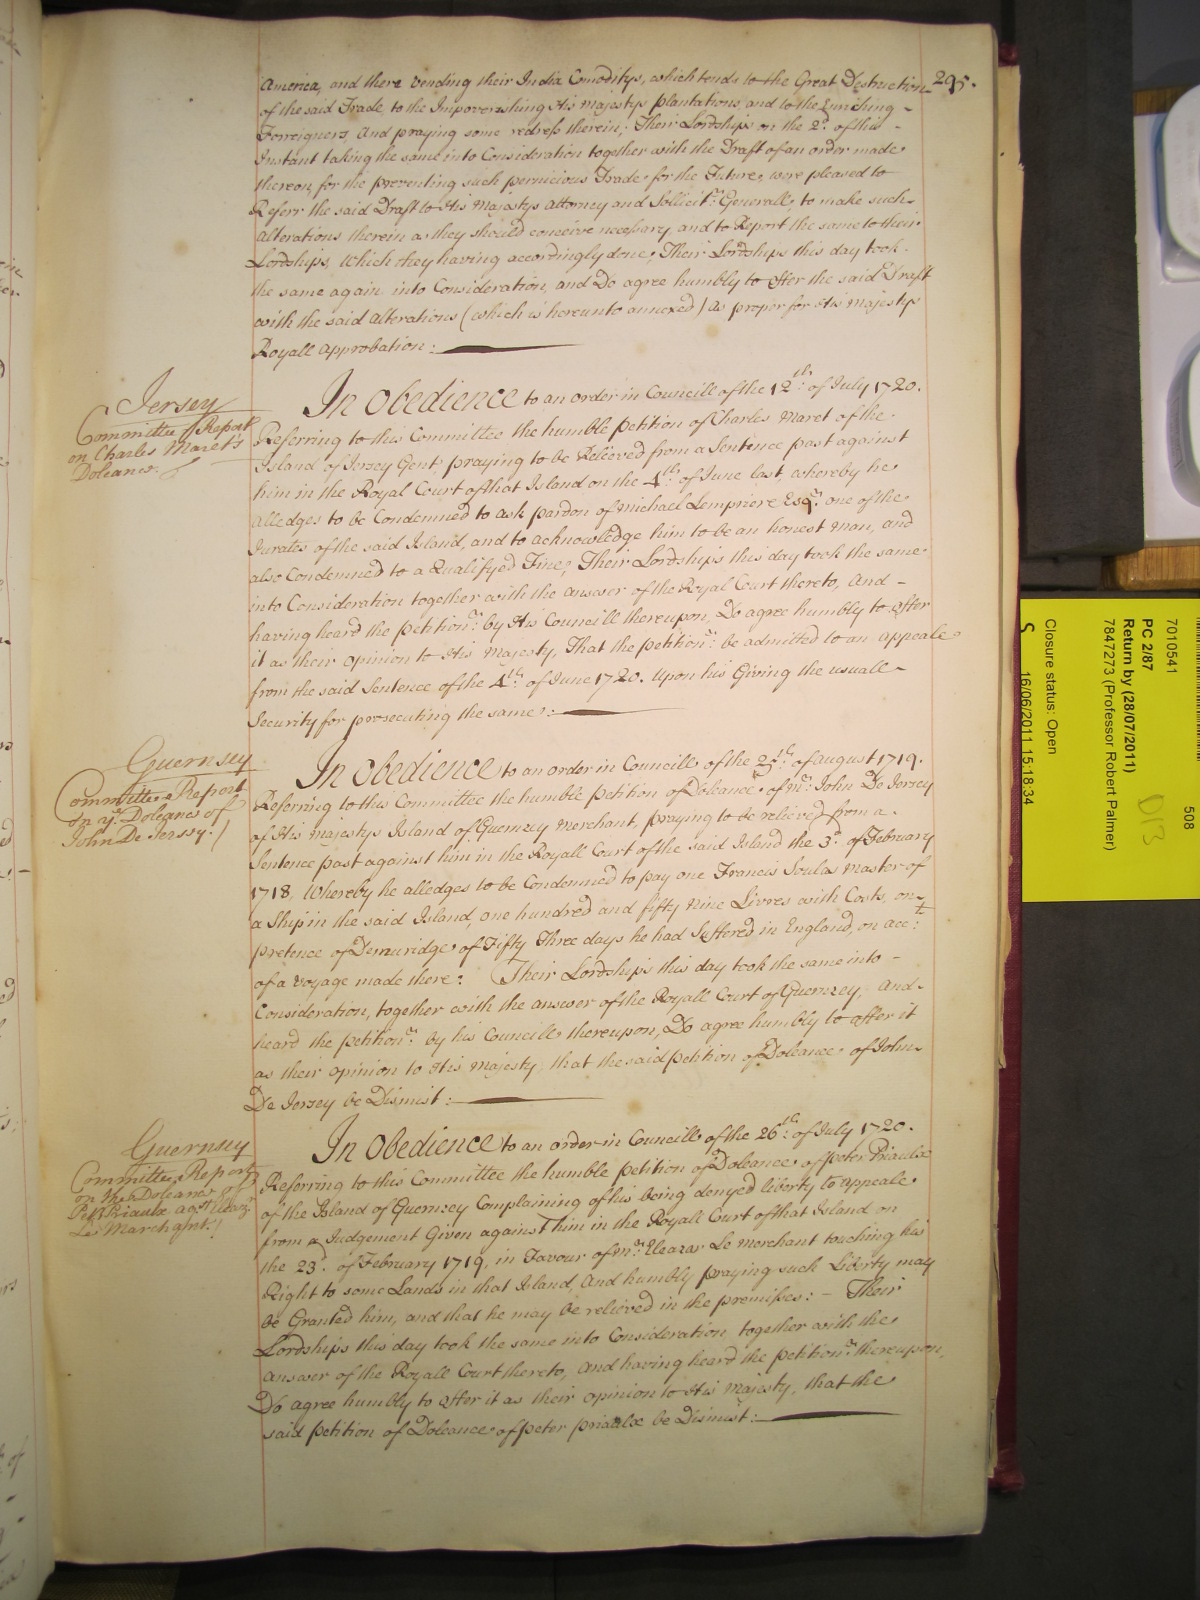 295.
America, and there vending their India Comoditys, which tends to the Great Destruction
of the said Trade, to the Impoverishing His Majestys plantations and to the Enriching -
Forreigners, And praying some redress therein; Their Lordships on the 2d. of this -
Instant taking the same into Consideration together with the Draft of an order made
thereon, for the preventing such pernicious Trade for the Future, were pleased to
Referr the said Draft to His Majestys Attorney and Sollicitr. Generall, to make such
Alterations therein as they should conceive necessary and to Report the same to their
Lordships, Which they having accordingly done; Their Lordships this day took
the same again into Consideration and Do agree humbly to offer the said Draft
with the said Alterations (which is hereunto annexed) as proper for His Majestys
Royall Approbation:
Jersey
Committee Report
on Charles Maret's
Doleance.
In Obedience to an order in Councill of the 12th. of July 1720.
Referring to this Committee the humble Petition of Charles Maret of the
Island of Jersey Gent praying to be Relieved from a Sentence past against
him in the Royal Court of that Island on the 4th. of June last, whereby he
alledges to be Condemned to ask pardon of Michael Lempriere Esqr. one of the
Jurates of the said Island, and to acknowledge him to be an honest Man, and
also Condemned to a Qualifyed Fine; Their Lordships this day took the same
into Consideration together with the answer of the Royal Court thereto, And -
having heard the Petitionr. by His Councill thereupon, Do agree humbly to offer
it as their opinion to His Majesty, That the petitionr. be admitted to an appeale
from the said Sentence of the 4th. of June 1720. upon his Giving the usuall
Security for prosecuting the same:
Guernsey
Committee Report
on ye. Doleance of
John De Jersey.
In Obedience to an order in Councill of the 25th. of August 1719.
Referring to this Committee the humble Petition of Doleance of Mr. John De Jersey
of His Majestys Island of Guernzey Merchant, praying to be relieved from a
Sentence past against him in the Royall Court of the said Island the 3d. of February
1718, Whereby he alledges to be Condemned to pay one Francis Soulas Master of
a Ship in the said Island, one hundred and fifty Nine Livres with Costs, on
pretence of Demuridge of Fifty Three days he had Suffered in England, on acct:
of a voyage made there: Their Lordships this day took the same into -
Consideration, together with the answer of the Royall Court of Guernzey, And
heard the Petitionr. by his Councill thereupon, Do agree humbly to offer it
as their opinion to His Majesty, that the said petition of Doleance of John
De Jersey be Dismist:
Guernsey
Committee Report
on the Doleance of
Petr. Priaulx agst. Eleazr.
Le Marchant.
In Obedience to an order in Councill of the 26th. of July 1720.
Referring to this Committee the humble petition of Doleance of peter Priaulx
of the Island of Guernzey Complaining of his being denyed liberty to appeale
from a Judgement Given against him in the Royall Court of that Island on
the 23d. of February 1719, in Favour of Mr. Eleazar Le Merchant touching his
Right to some Lands in that Island, And humbly praying such Liberty may
be Granted him, and that he may be relieved in the premisses: - Their
Lordships this day took the same into Consideration together with the
answer of the Royall Court thereto, and having heard the Petitionr. thereupon,
Do agree humbly to offer it as their opinion to His Majesty, that the
said petition of Doleance of peter priaulx be Dismist:
7010541
508
PC 2/87
Return by (28/07/2011)
7847273 (Professor Robert Palmer)
D13
Closure status: Open
S
16/06/2011 15:18:34